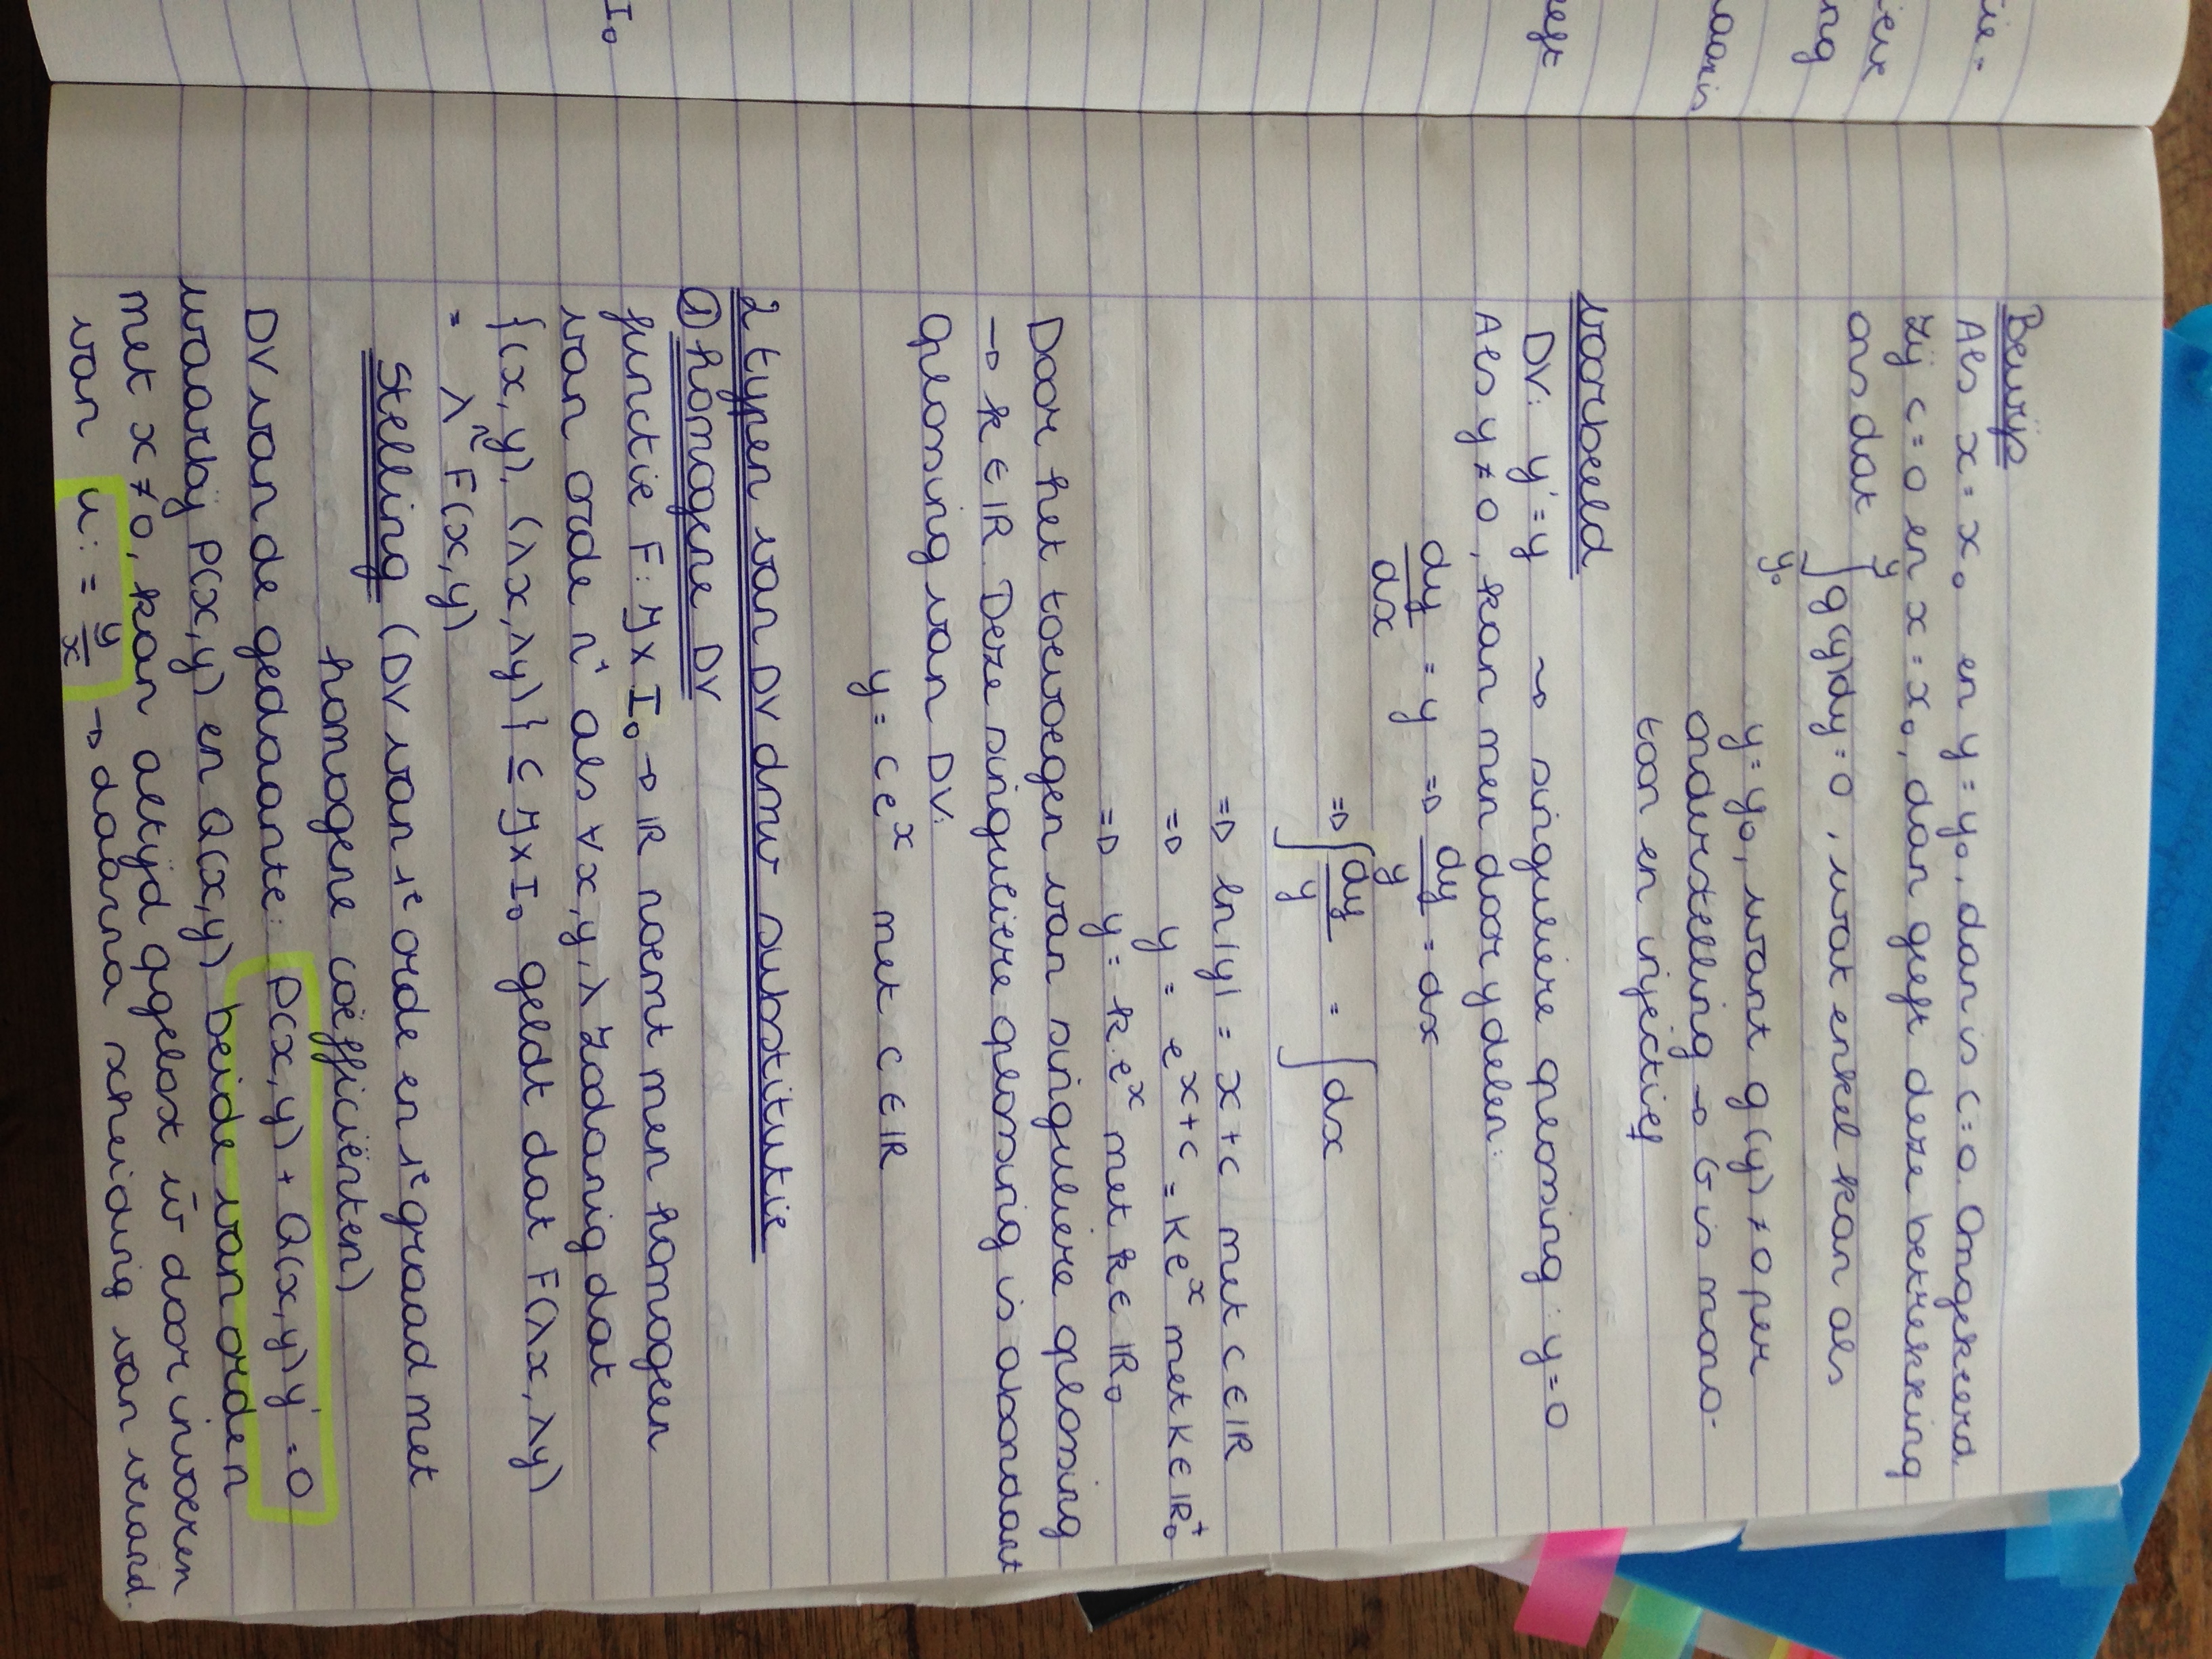 tie-
ieve
ng
aaris
eeft
I₀
Bewijs
Als x = x₀ en y = y₀, dan is c = 0. Omgekeerd
zij c = 0 en x = x₀, dan geeft deze betrekking
ons dat ∫_{y₀}^{y} g(y)dy = 0, wat enkel kan als
y = y₀, want g(y) ≠ 0 per
onderstelling → G is mono-
toon en injectief
voorbeeld
DV: y' = y ~> singuliere oplossing: y = 0
Als y ≠ 0, kan men door y delen:
dy/dx = y => dy/y = dx
=> ∫ dy/y = ∫ dx
=> ln|y| = x + c met c ∈ ℝ
=> y = e^{x+c} = K e^x met K ∈ ℝ₀⁺
=> y = k.e^x met k ∈ ℝ₀
Door het toevoegen van singuliere oplossing
→ k ∈ ℝ. Deze singuliere oplossing is abondant
Oplossing van DV:
y = c e^x met c ∈ ℝ
2 typen van DV dmv substitutie
① homogene DV
functie F: J x I₀ → ℝ noemt men homogeen
van orde n als ∀x, y, λ zodanig dat
{(x, y), (λx, λy)} ⊆ J x I₀ geldt dat F(λx, λy)
= λⁿ F(x, y)
Stelling (DV van 1e orde en 1e graad met
homogene coëfficiënten)
DV van de gedaante: P(x, y) + Q(x, y) y' = 0
waarbij P(x, y) en Q(x, y) beide van orde n
met x ≠ 0, kan altijd opgelost w̄ door invoeren
van u := y/x → daarna scheiding van verand.